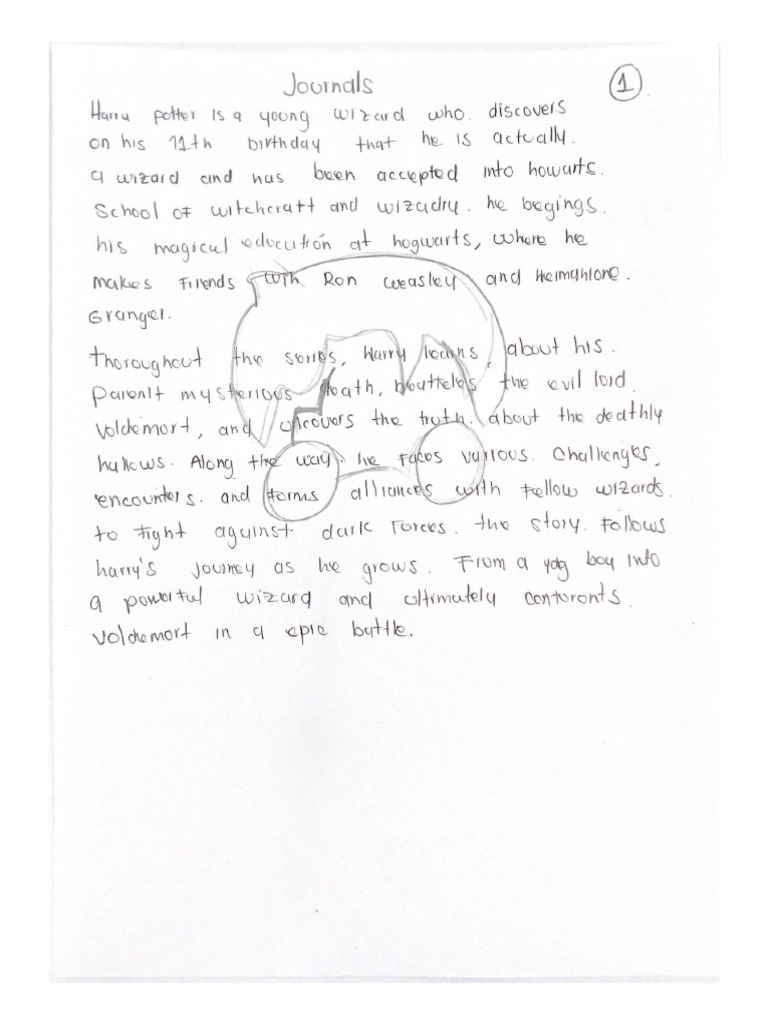 Journals
1
Harry potter is a young wizard who discovers
on his 11th birthday that he is actually.
a wizard and has been accepted into howarts.
School of witchcraft and wizadry. he begings.
his magical education at hogwarts, where he
makes Friends with Ron weasley and Heimahione.
Granger.
Thoroughout the series, Harry learns, about his.
Parenlt mysterious death, beatteles the evil lord.
Voldemort, and uncovers the truth. about the deathly
hallows. Along the way. he faces various. Challenges,
encounters. and forms alliances with Fellow wizards.
to fight against dark forces. the story. Follows
harry's journey as he grows. From a yog boy into
a powerful wizard and ultimately contoronts.
Voldemort in a epic battle.